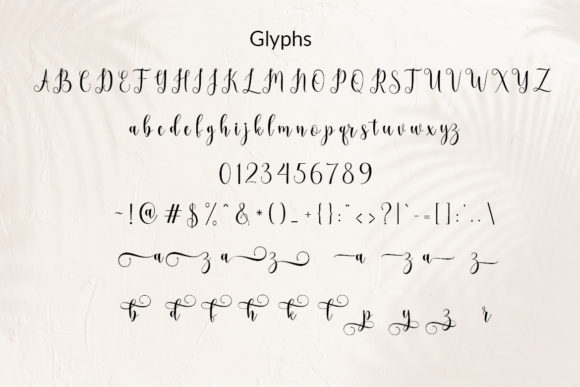 Glyphs
A B C D E F G H I J K L M N O P Q R S T U V W X Y Z
a b c d e f g h i j k l m n o p q r s t u v w x y z
0 1 2 3 4 5 6 7 8 9
~ ! @ # $ % ^ & * ( ) _ + { } : " < > ? | ` - = [ ] ; ' , . \
a z a z a z a z
b d f h k t p y z r